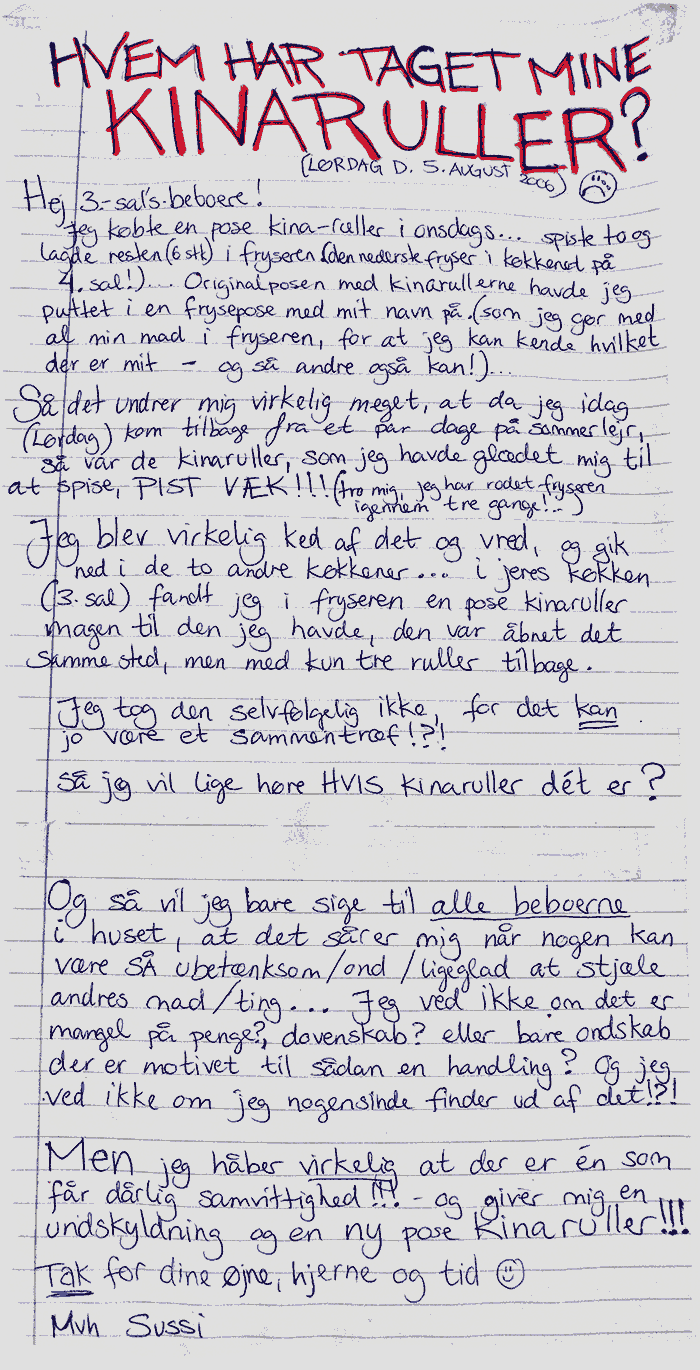 HVEM HAR TAGET MINE
KINARULLER?
(LØRDAG D. 5. AUGUST 2006)
Hej 3.-sal's-beboere!
Jeg købte en pose kina-ruller i onsdags... spiste to og
lagde resten (6 stk) i fryseren (den nederste fryser i køkkenet på
4. sal!)... Originalposen med kinarullerne havde jeg
puttet i en frysepose med mit navn på. (som jeg gør med
al min mad i fryseren, for at jeg kan kende hvilket
der er mit - og så andre også kan!)...
Så det undrer mig virkelig meget, at da jeg idag
(Lørdag) kom tilbage fra et par dage på sommerlejr,
så var de kinaruller, som jeg havde glædet mig til
at spise, PIST VÆK!!! (tro mig, jeg har rodet fryseren
igennem tre gange!..)
Jeg blev virkelig ked af det og vred, og gik
ned i de to andre køkkener... i jeres køkken
(3. sal) fandt jeg i fryseren en pose kinaruller
magen til den jeg havde, den var åbnet det
samme sted, men med kun tre ruller tilbage.
Jeg tog den selvfølgelig ikke, for det kan
jo være et sammentræf!?!
Så jeg vil lige høre HVIS kinaruller dét er?
Og så vil jeg bare sige til alle beboerne
i huset, at det sårer mig når nogen kan
være SÅ ubetænksom/ond/ligeglad at stjæle
andres mad/ting... Jeg ved ikke om det er
mangel på penge?, dovenskab? eller bare ondskab
der er motivet til sådan en handling? Og jeg
ved ikke om jeg nogensinde finder ud af det!?!
Men jeg håber virkelig at der er én som
får dårlig samvittighed!!! - og giver mig en
undskyldning og en ny pose kinaruller!!!
Tak for dine øjne, hjerne og tid ☺
Mvh Sussi